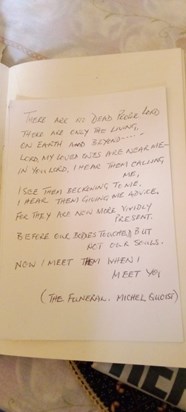 THERE ARE NO DEAD PEOPLE LORD
THERE ARE ONLY THE LIVING,
ON EARTH AND BEYOND......
LORD, MY LOVED ONES ARE NEAR ME -
IN YOU LORD, I HEAR THEM CALLING
ME,
I SEE THEM BECKONING TO ME.
I HEAR THEM GIVING ME ADVICE,
FOR THEY ARE NOW MORE VIVIDLY
PRESENT.
BEFORE OUR BODIES TOUCHED BUT
NOT OUR SOULS.
NOW I MEET THEM WHEN I
MEET YOU
(THE FUNERAL. MICHEL QUOIST)